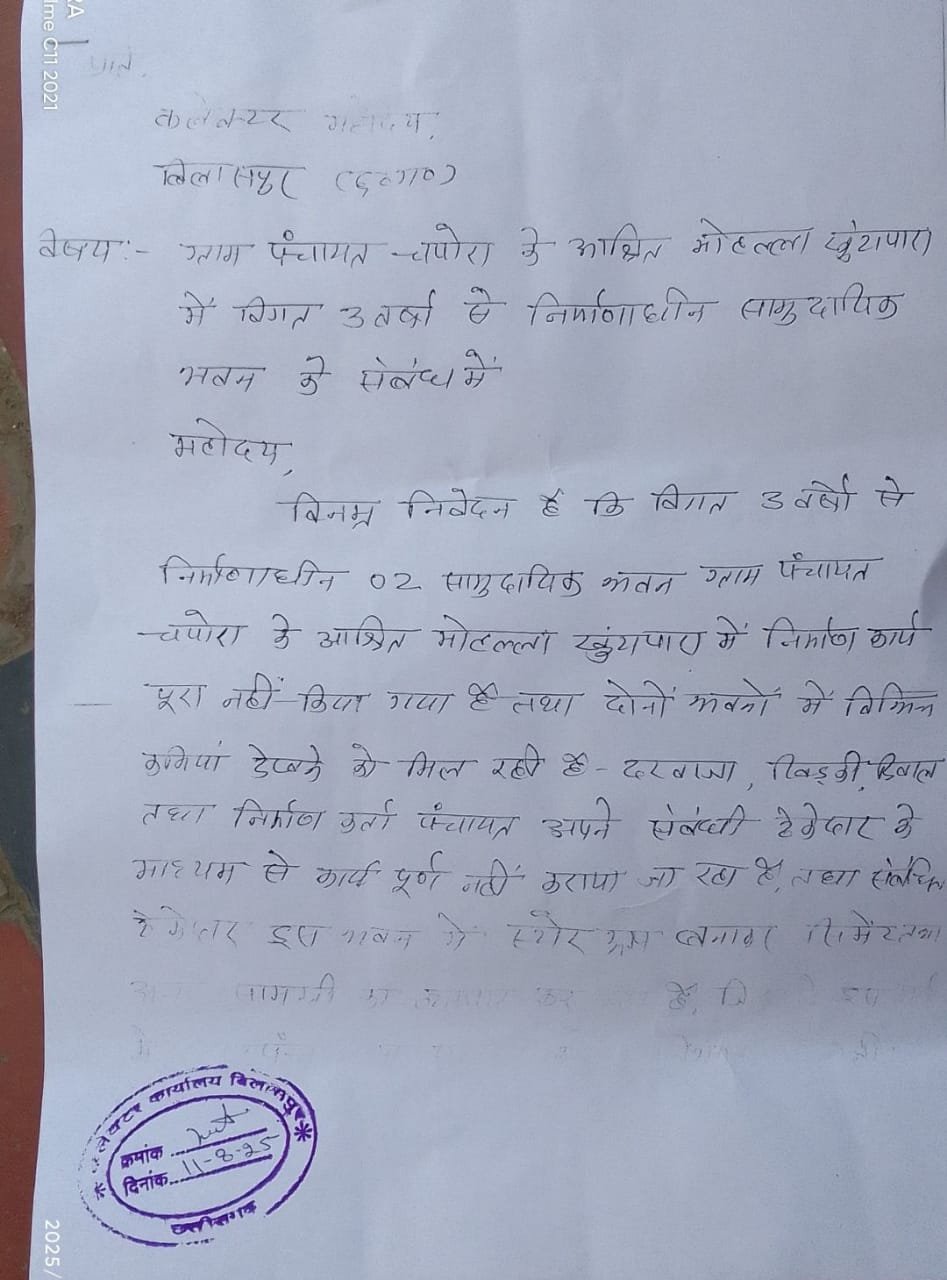 RA
lme C11 2021
प्रति,
कलेक्टर महोदय,
बिलासपुर (छ०ग०)
विषय:- ग्राम पंचायत चपोरा के आश्रित मोहल्ला खुंटापारा
में विगत 3 वर्षो से निर्माणाधीन सामुदायिक
भवन के संबंध में
महोदय,
विनम्र निवेदन है कि विगत 3 वर्षो से
निर्माणाधीन 02 सामुदायिक भवन ग्राम पंचायत
चपोरा के आश्रित मोहल्ला खुंटापारा में निर्माण कार्य
पूरा नहीं किया गया है तथा दोनों भवनों में विभिन्न
कमियां देखने को मिल रही है - दरवाजा, खिड़की, दिवाल
तथा निर्माण कर्ता पंचायत अपने संबंधी ठेकेदार के
माध्यम से कार्य पूर्ण नहीं कराया जा रहा है, तथा संबंधित
ठेकेदार इस भवन को स्टोर रूम बनाकर सिमेंट तथा
सामग्री का कर है,
कलेक्टर कार्यालय बिलासपुर
क्रमांक
दिनांक 11-8-25
छत्तीसगढ़
2025/